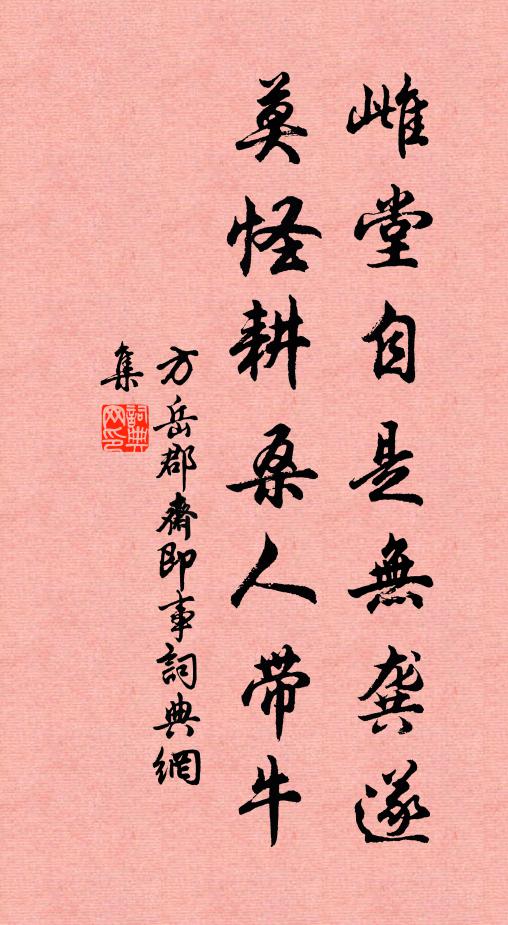 雌堂自是無龔遂
莫怪耕桑人帶牛
方岳郡齋即事詞典網
集
詞典
网印